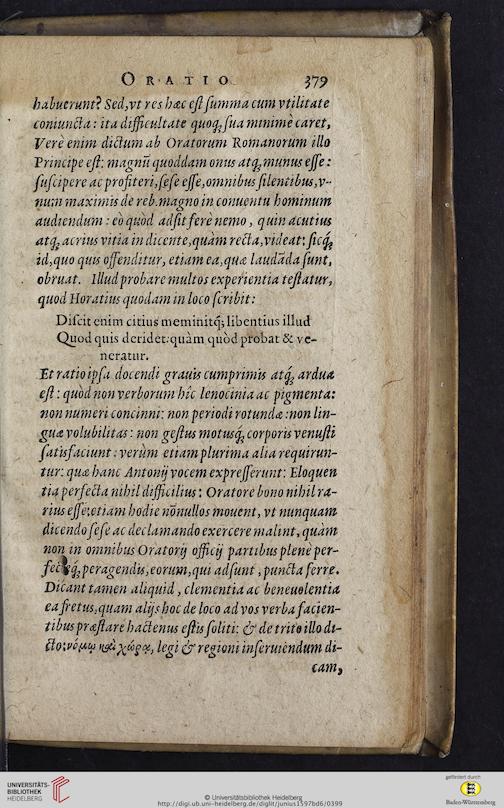 ORATIO 379
habuerunt? Sed, vt res hæc est summa cum vtilitate
coniuncta: ita difficultate quoq; sua minimè caret,
Verè enim dictum ab Oratorum Romanorum illo
Principe est: magnũ quoddam onus atq; munus esse:
suscipere ac profiteri, sese esse, omnibus silentibus, v-
num maximis de reb. magno in conuentu hominum
audiendum: eò quòd adsit ferè nemo, quin acutius
atq; acrius vitia in dicente, quàm recta, videat: sicq;
id, quo quis offenditur, etiam ea, quæ laudãda sunt,
obruat. Illud probare multos experientia testatur,
quod Horatius quodam in loco scribit:
Discit enim citius meminitq́; libentius illud
Quod quis deridet: quàm quòd probat & ve-
neratur.
Et ratio ipsa docendi grauis cumprimis atq; ardua
est: quòd non verborum hîc lenocinia ac pigmenta:
non numeri concinni: non periodi rotundæ: non lin-
guæ volubilitas: non gestus motusq́; corporis venusti
satisfaciunt: verùm etiam plurima alia requirun-
tur: quæ hanc Antonij vocem expresserunt: Eloquen
tia perfecta nihil difficilius: Oratore bono nihil ra-
rius esse: etiam hodie nõnullos mouent, vt nunquam
dicendo sese ac declamando exercere malint, quàm
non in omnibus Oratorij officij partibus plenè per-
fectéq; peragendis, eorum, qui adsunt, puncta ferre.
Dicant tamen aliquid, clementia ac beneuolentia
ea fretus, quam alijs hoc de loco ad vos verba facien-
tibus præstare hactenus estis soliti: & de trito illo di-
cto: νόμῳ καὶ χώρᾳ, legi & regioni inseruiendum di-
cam,
UNIVERSITÄTS-
BIBLIOTHEK
HEIDELBERG
© Universitätsbibliothek Heidelberg
http://digi.ub.uni-heidelberg.de/diglit/junius1597bd6/0399
gefördert durch
Baden-Württemberg